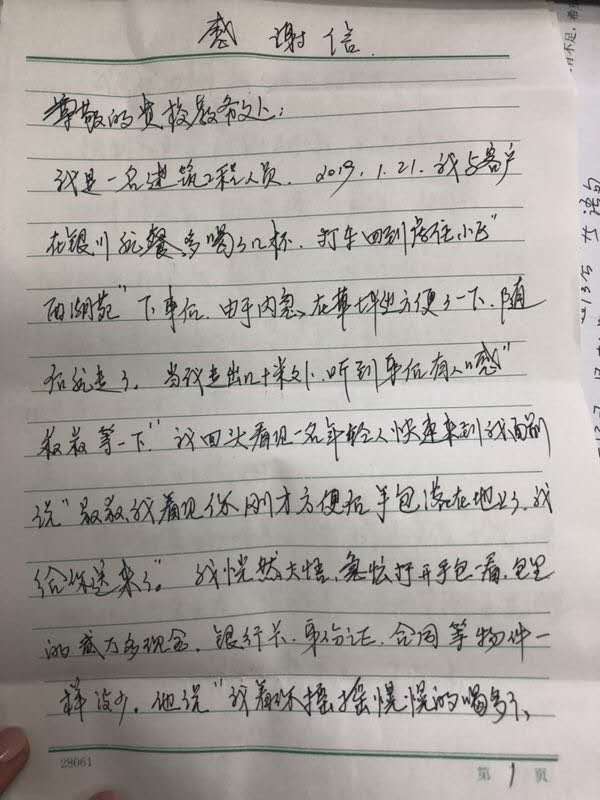 感谢信
尊敬的贵校教务处:
我是一名建筑工程人员. 2019.1.21.我与客户
在银川就餐,多喝了几杯. 打车回到居住小区"
西湖苑"下车后.由于内急,在草坪上方便了一下.随
后就走了. 当我走出几十米处.听到身后有人"喊"
叔叔等一下"我回头看见一名年轻人快速来到我面前
说"叔叔我看见你刚才方便后手包落在地上了.我
给你送来了." 我恍然大悟,急忙打开手包一看,包里
的 万多现金.银行卡.身份证.合同等物件一
样没少. 他说"我看你摇摇慌慌的喝多了,
28061
第 1 页